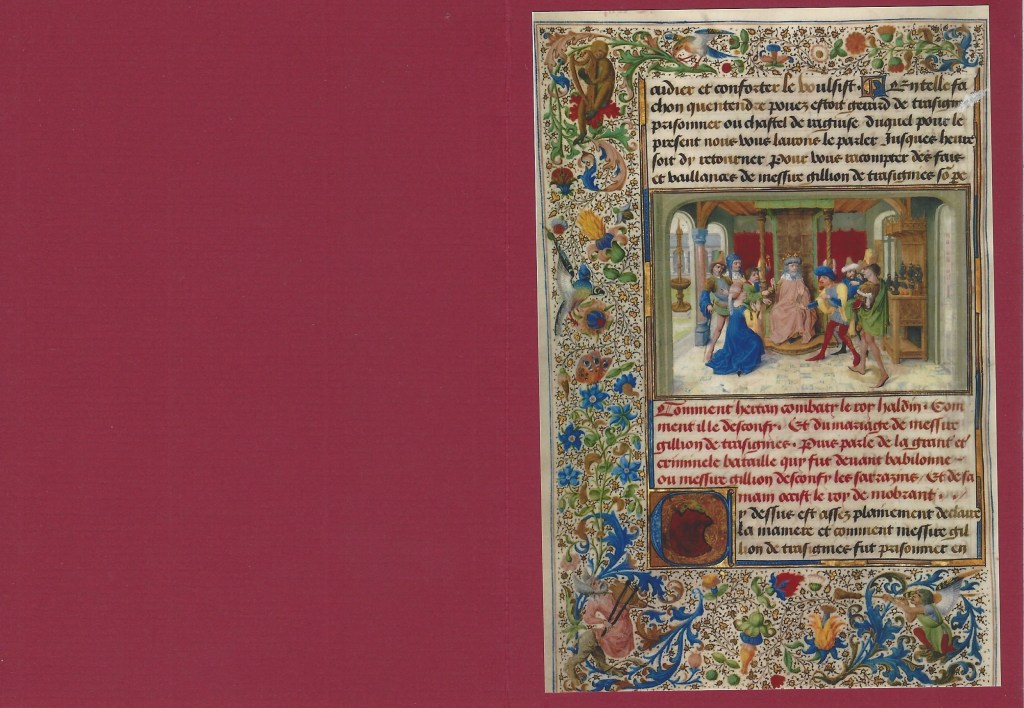 aidier et conforter le voulsist. En telle fa
chon qu entendre pouez estoit gerard de trasign
prisonnier ou chastel de ragiuse duquel pour le
present nous vous lairons le parler Jusques heure
soit d y retourner Pour vous racompter des fais
et vaillances de messire gillion de trasignies so pe
Comment hertan combaty le roy haldin. Com
ment il le desconfy. Et du mariage de messire
gillion de trasignies. Puis parle de la grant et
criminele bataille quy fut deuant babilonne
ou messire gillion desconfy les sarrazins / Et de sa
main occist le roy de mobrant.
Cy dessus est assez plainement declaire
la maniere et comment messire gil
lion de trasignies fut prisonnier en